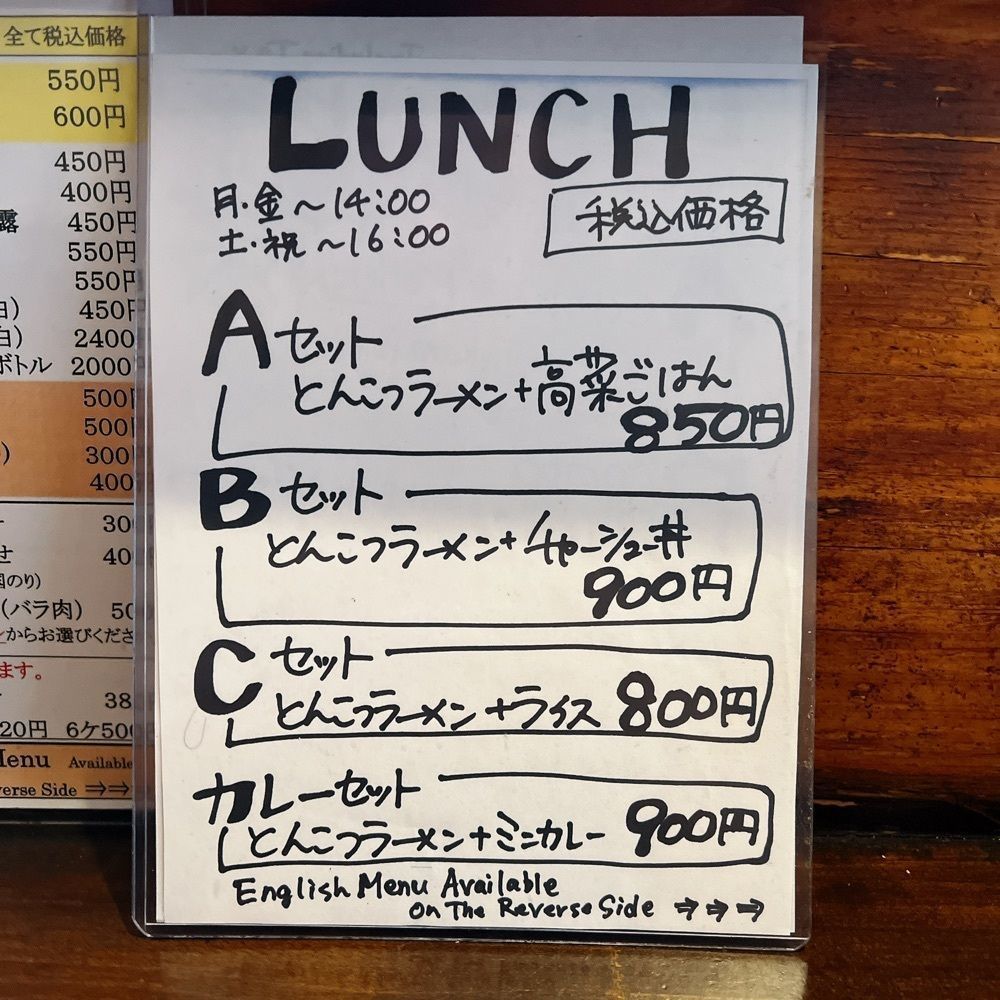 全て税込価格
550円
600円
450円
400円
露 450円
550円
550円
450円
2400
ボトル 2000
500
500
300
400
30
せ 40
のり)
(バラ肉) 50
からお選びくださ
ます。
38
20円 6ケ500
Menu Available
verse Side ⇒⇒
LUNCH
月・金～14:00
土・祝～16:00
税込価格
Aセット
とんこつラーメン+高菜ごはん
850円
Bセット
とんこつラーメン+チャーシュー丼
900円
Cセット
とんこつラーメン+ライス 800円
カレーセット
とんこつラーメン+ミニカレー 900円
English Menu Available
On The Reverse Side ⇒⇒⇒